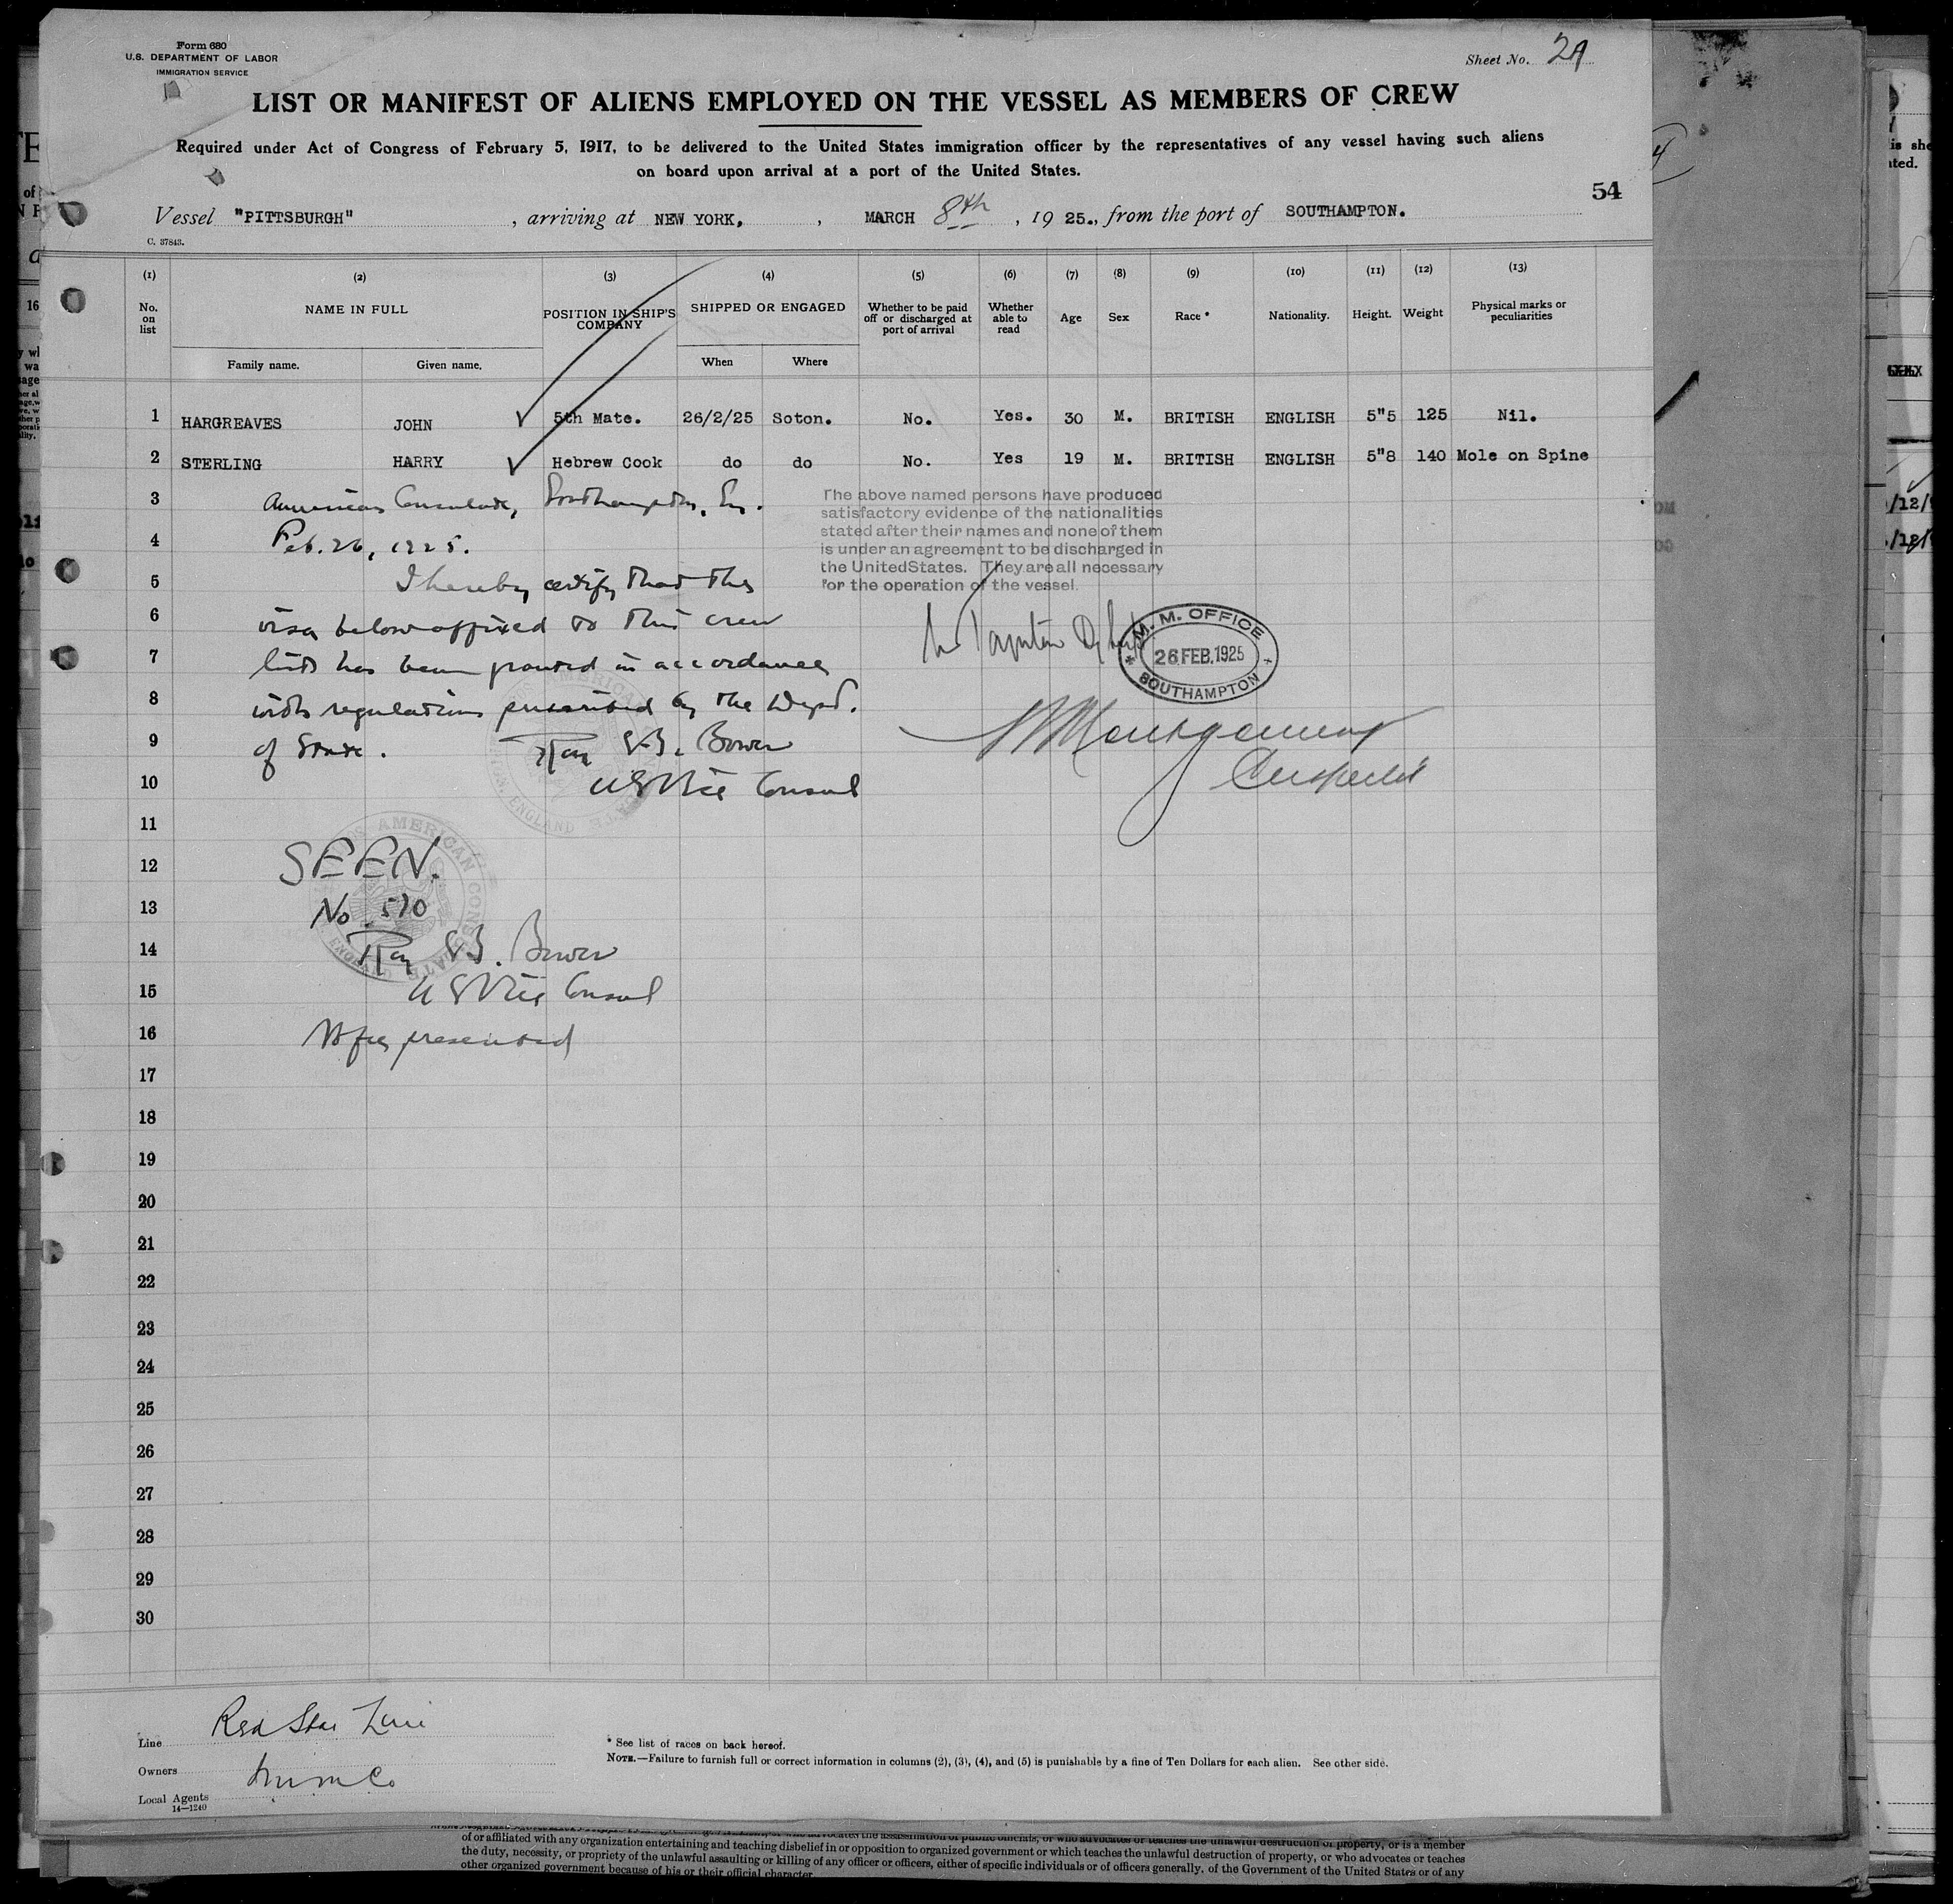 Form 680
U.S. DEPARTMENT OF LABOR
IMMIGRATION SERVICE
Sheet No.
LIST OR MANIFEST OF ALIENS EMPLOYED ON THE VESSEL AS MEMBERS OF CREW
Required under Act of Congress of February 5, 1917, to be delivered to the United States immigration officer by the representatives of any vessel having such aliens
on board upon arrival at a port of the United States.
54
Vessel "PITTSBURGH" , arriving at NEW YORK, , MARCH 8th , 19 25., from the port of SOUTHAMPTON.
C. 37843.
(1) (2) (3) (4) (5) (6) (7) (8) (9) (10) (11) (12) (13)
No. on list NAME IN FULL POSITION IN SHIP'S COMPANY SHIPPED OR ENGAGED Whether to be paid off or discharged at port of arrival Whether able to read Age Sex Race * Nationality. Height. Weight Physical marks or peculiarities
Family name. Given name. When Where
1 HARGREAVES JOHN 5th Mate. 26/2/25 Soton. No. Yes. 30 M. BRITISH ENGLISH 5"5 125 Nil.
2 STERLING HARRY Hebrew Cook do do No. Yes 19 M. BRITISH ENGLISH 5"8 140 Mole on Spine
3 American Consulate, Southampton, Eng.
4 Feb. 26, 1925.
The above named persons have produced
satisfactory evidence of the nationalities
stated after their names and none of them
is under an agreement to be discharged in
the United States. They are all necessary
for the operation of the vessel.
5 I hereby certify that the
6 visa below affixed to this crew
7 list has been granted in accordance
8 with regulations prescribed by the Dept.
9 of State. Ray Bower
10 US Vice Consul
M. M. OFFICE
26 FEB. 1925
SOUTHAMPTON
Montgomery
11
12 SEEN.
13 No. 510
14 Ray Bower
15 US Vice Consul
16 No fee presented
AMERICAN CONSULATE
ENGLAND
17
18
19
20
21
22
23
24
25
26
27
28
29
30
Line Red Star Line
Owners
Local Agents
14—1240
* See list of races on back hereof.
NOTE.—Failure to furnish full or correct information in columns (2), (3), (4), and (5) is punishable by a fine of Ten Dollars for each alien. See other side.
of or affiliated with any organization entertaining and teaching disbelief in or opposition to organized government or which teaches the unlawful destruction of property, or is a member
the duty, necessity, or propriety of the unlawful assaulting or killing of any officer or officers, either of specific individuals or of officers generally, of the Government of the United States or of any
other organized government because of his or their official character.